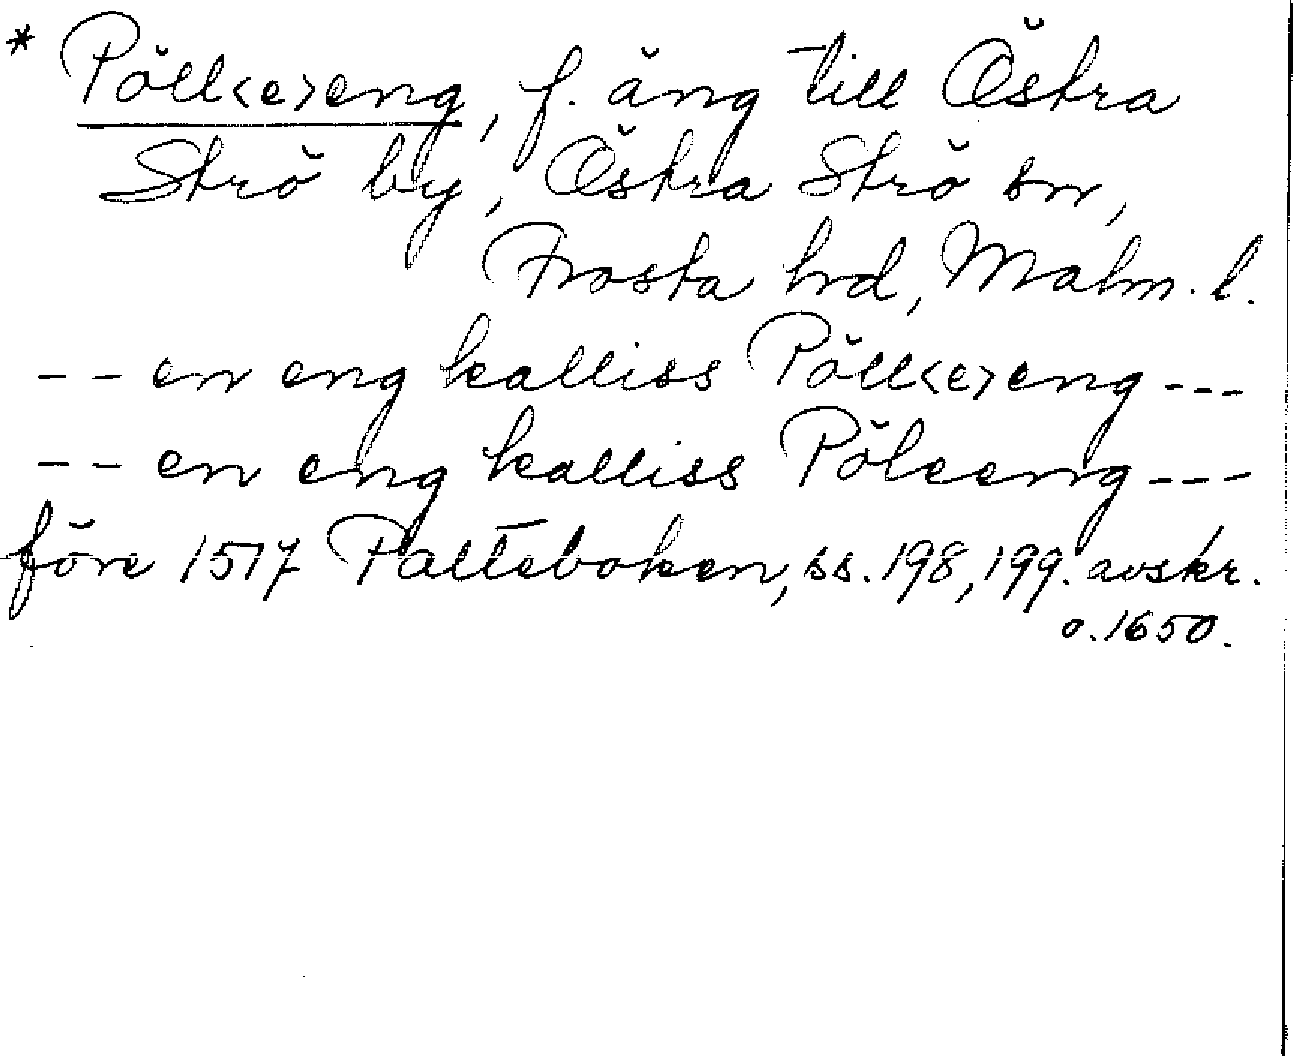 * Pöll<e>eng, f. äng till Östra
Strö by, Östra Strö sn,
Frosta hrd, Malm. l.
-- en eng kalliss Pöll<e>eng ---
-- en eng kalliss Pöleeng ---
före 1517 Palteboken, ss. 198, 199. avskr.
o. 1650.